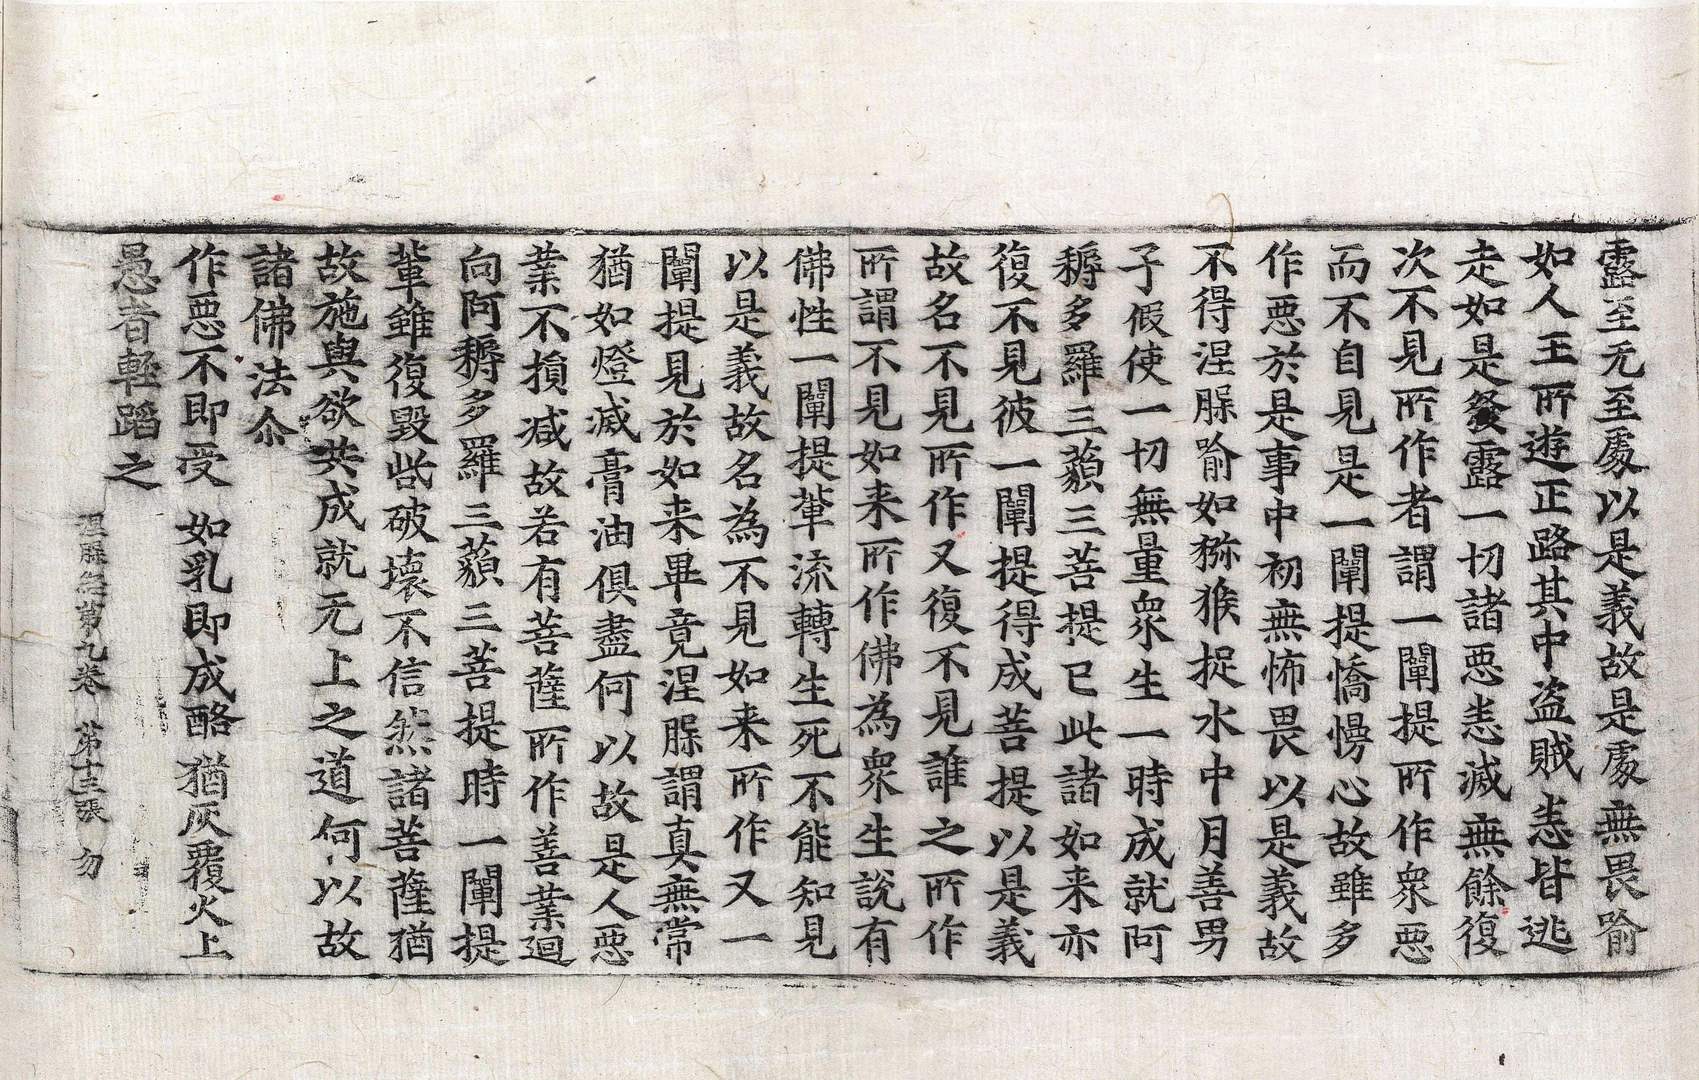 露至无至處以是義故是處無畏喻
如人王所遊正路其中盗賊悉皆逃
走如是發露一切諸惡悉滅無餘復
次不見所作者謂一闡提所作衆惡
而不自見是一闡提憍慢心故雖多
作惡於是事中初無怖畏以是義故
不得涅槃喻如猕猴捉水中月善男
子假使一切無量衆生一時成就阿
耨多羅三藐三菩提已此諸如来亦
復不見彼一闡提得成菩提以是義
故名不見所作又復不見誰之所作
所謂不見如来所作佛為衆生說有
佛性一闡提輩流轉生死不能知見
以是義故名為不見如来所作又一
闡提見於如来畢竟涅槃謂真無常
猶如燈滅膏油俱盡何以故是人惡
業不損减故若有菩薩所作善業迴
向阿耨多羅三藐三菩提時一闡提
輩雖復毀呰破壞不信然諸菩薩猶
故施與欲共成就无上之道何以故
諸佛法尒
作惡不即受 如乳即成酪 猶灰覆火上
愚者輕蹈之
涅槃經第九卷 第十三張 勿